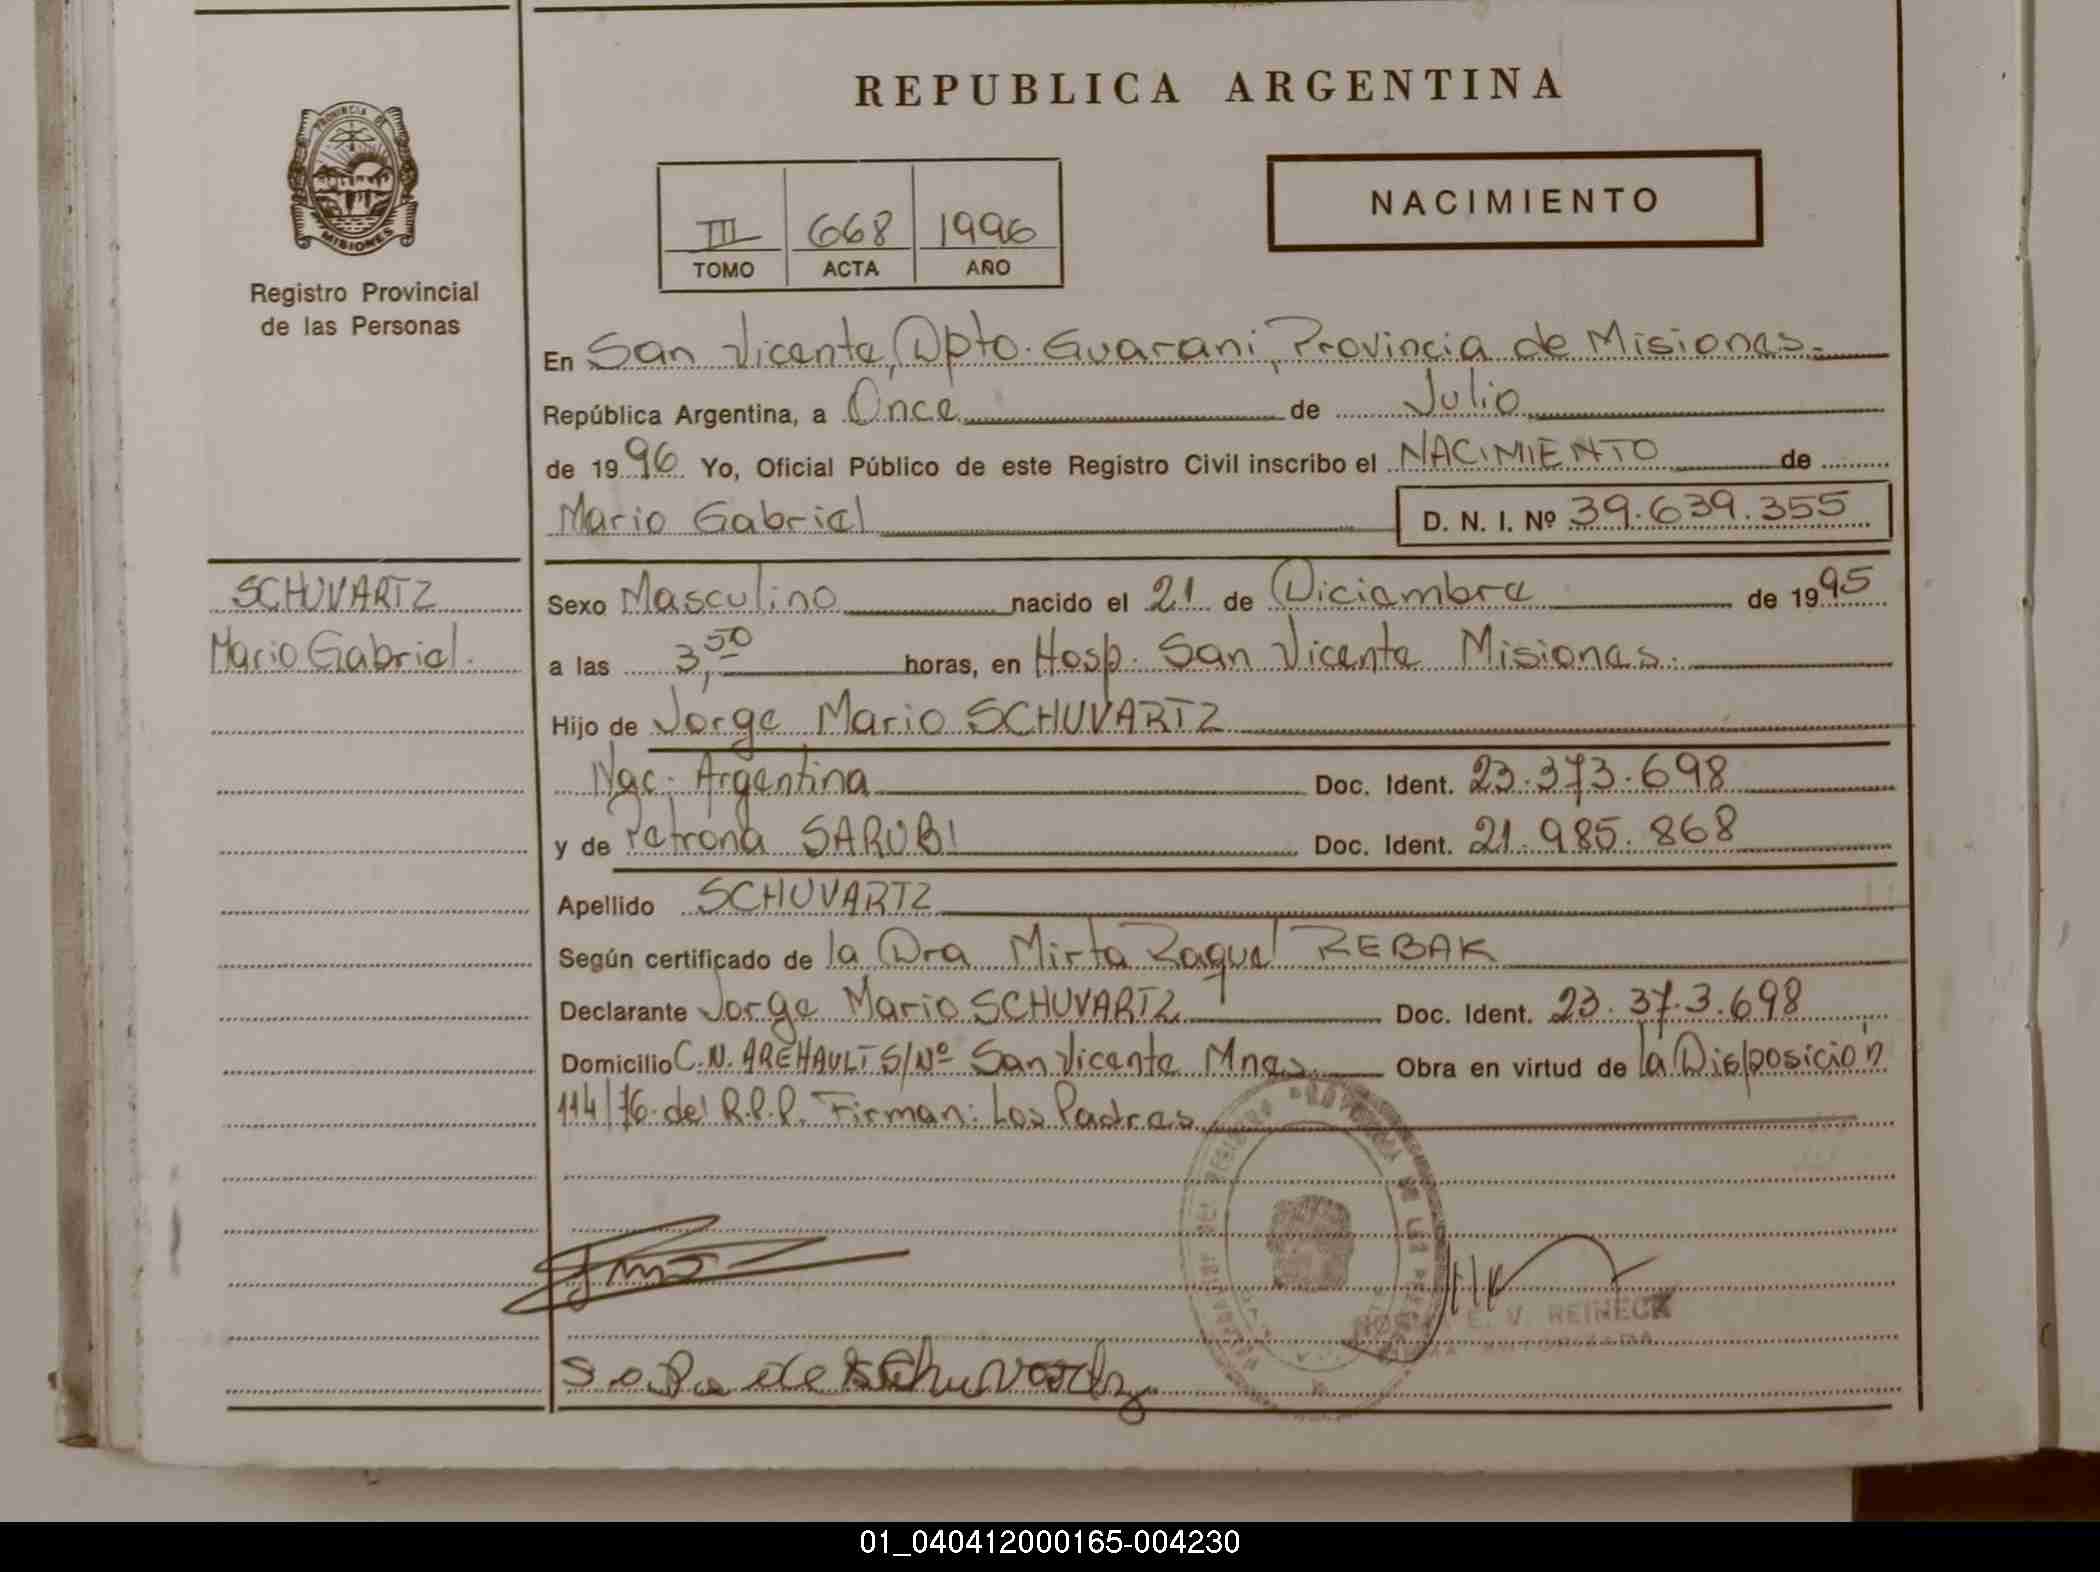 REPUBLICA ARGENTINA
PROVINCIA DE
MISIONES
Registro Provincial
de las Personas
III 668 1996
TOMO ACTA AÑO
NACIMIENTO
En San Vicente, Dpto. Guarani, Provincia de Misiones.
República Argentina, a Once de Julio
de 1996 Yo, Oficial Público de este Registro Civil inscribo el NACIMIENTO de
Mario Gabriel D. N. I. Nº 39.639.355
SCHUVARTZ
Mario Gabriel.
Sexo Masculino nacido el 21 de Diciembre de 1995
a las 3,50 horas, en Hosp. San Vicente Misiones.
Hijo de Jorge Mario SCHUVARTZ
Nac. Argentina Doc. Ident. 23.373.698
y de Petrona SARUBI Doc. Ident. 21.985.868
Apellido SCHUVARTZ
Según certificado de la Dra Mirta Raquel REBAK
Declarante Jorge Mario SCHUVARTZ Doc. Ident. 23.373.698
Domicilio C.N. AREHAULT S/Nº San Vicente Mnes Obra en virtud de la Disposición
114/76 del R.P.P. Firman: Los Padres
E. V. REINECK
de Schuvartz
01_040412000165-004230